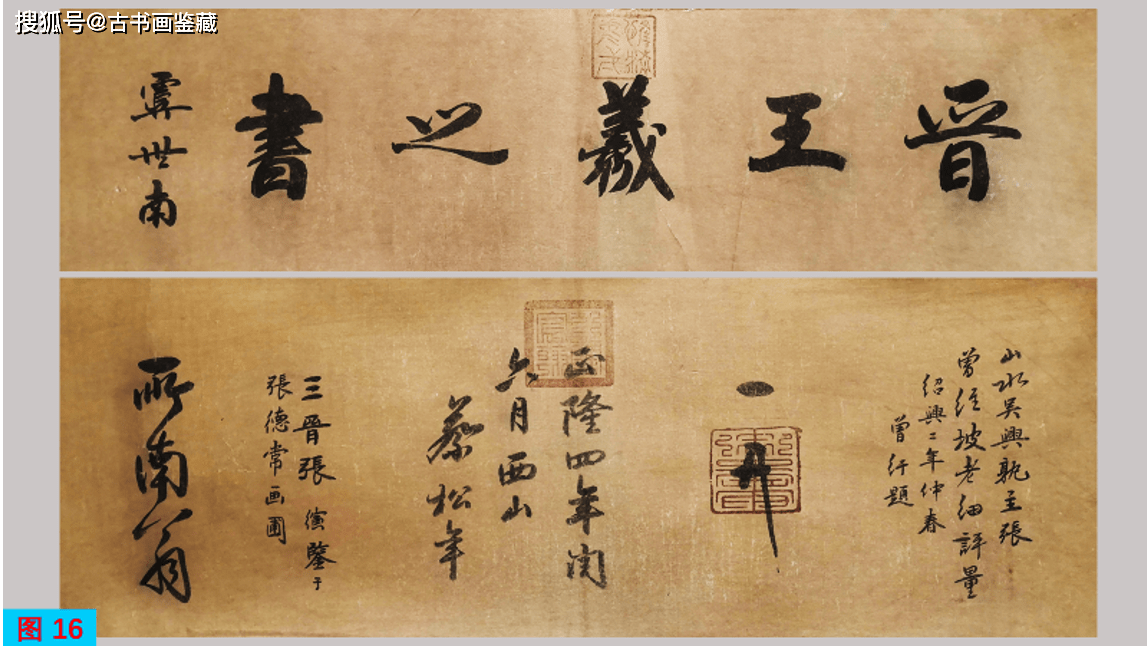 搜狐号@古书画鉴藏
晉王羲之書
虞世南
山水吳興孰主張
曾經坡老細評量
紹興二年仲春
曾紆題
正隆四年閏
六月西山
蔡松年
三晉張演鑒于
張德常画圃
所南翁
图 16